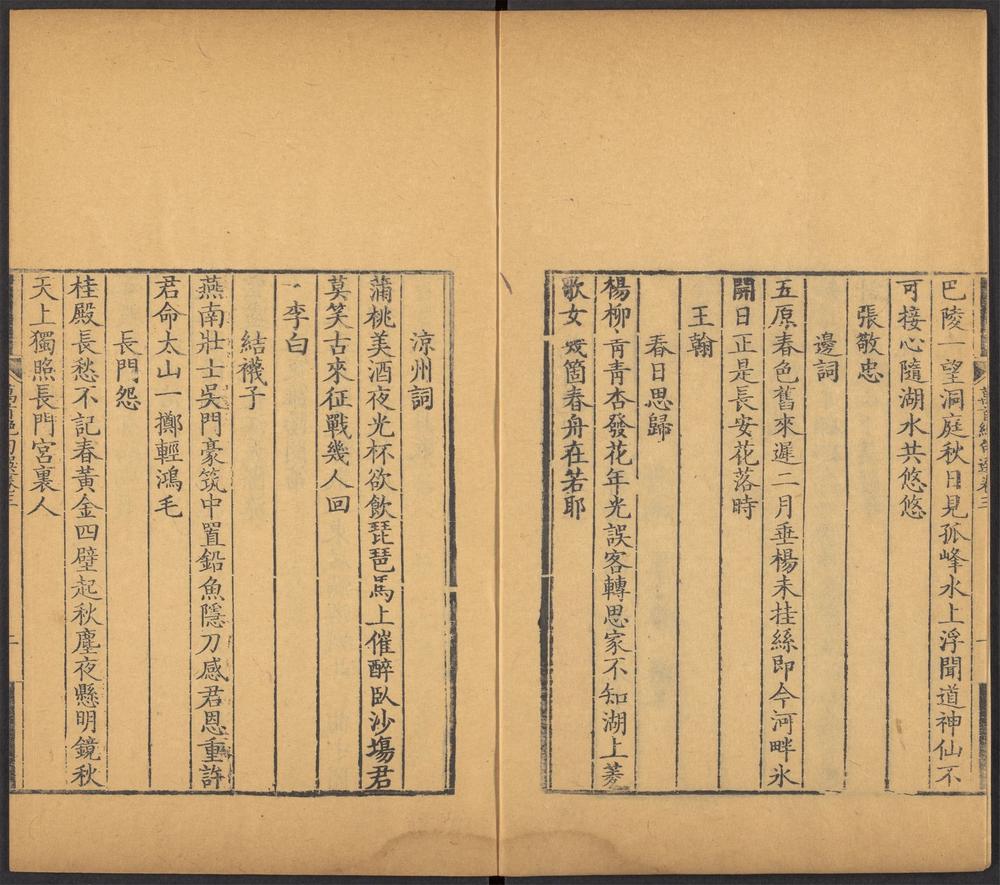 巴陵一望洞庭秋日見孤峰水上浮聞道神仙不
可接心隨湖水共悠悠
張敬忠
邊詞
五原春色舊來遲二月垂楊未挂絲即今河畔氷
開日正是長安花落時
王翰
春日思歸
楊柳青青杏發花年光誤客轉思家不知湖上菱
歌女幾箇春舟在若耶
涼州詞
蒲桃美酒夜光杯欲飲琵琶馬上催醉臥沙塲君
莫笑古來征戰幾人回
李白
結襪子
燕南壯士吳門豪筑中置鉛魚隱刀感君恩重許
君命太山一擲輕鴻毛
長門怨
桂殿長愁不記春黃金四壁起秋塵夜懸明鏡秋
天上獨照長門宮裏人